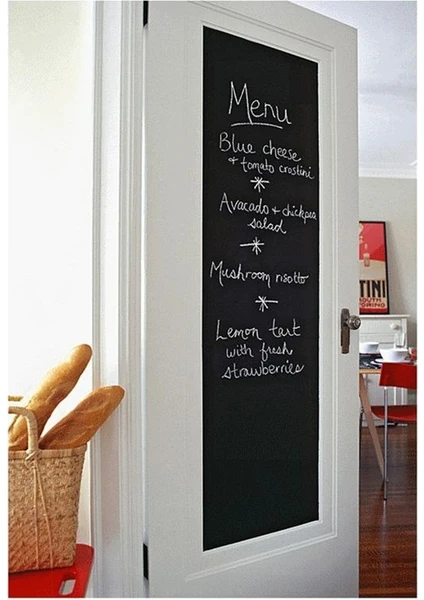 Menu
Blue cheese
+ tomato crostini
Avacado + chickpea
salad
Mushroom risotto
Lemon tart
with fresh
strawberries
TINI
TORINO